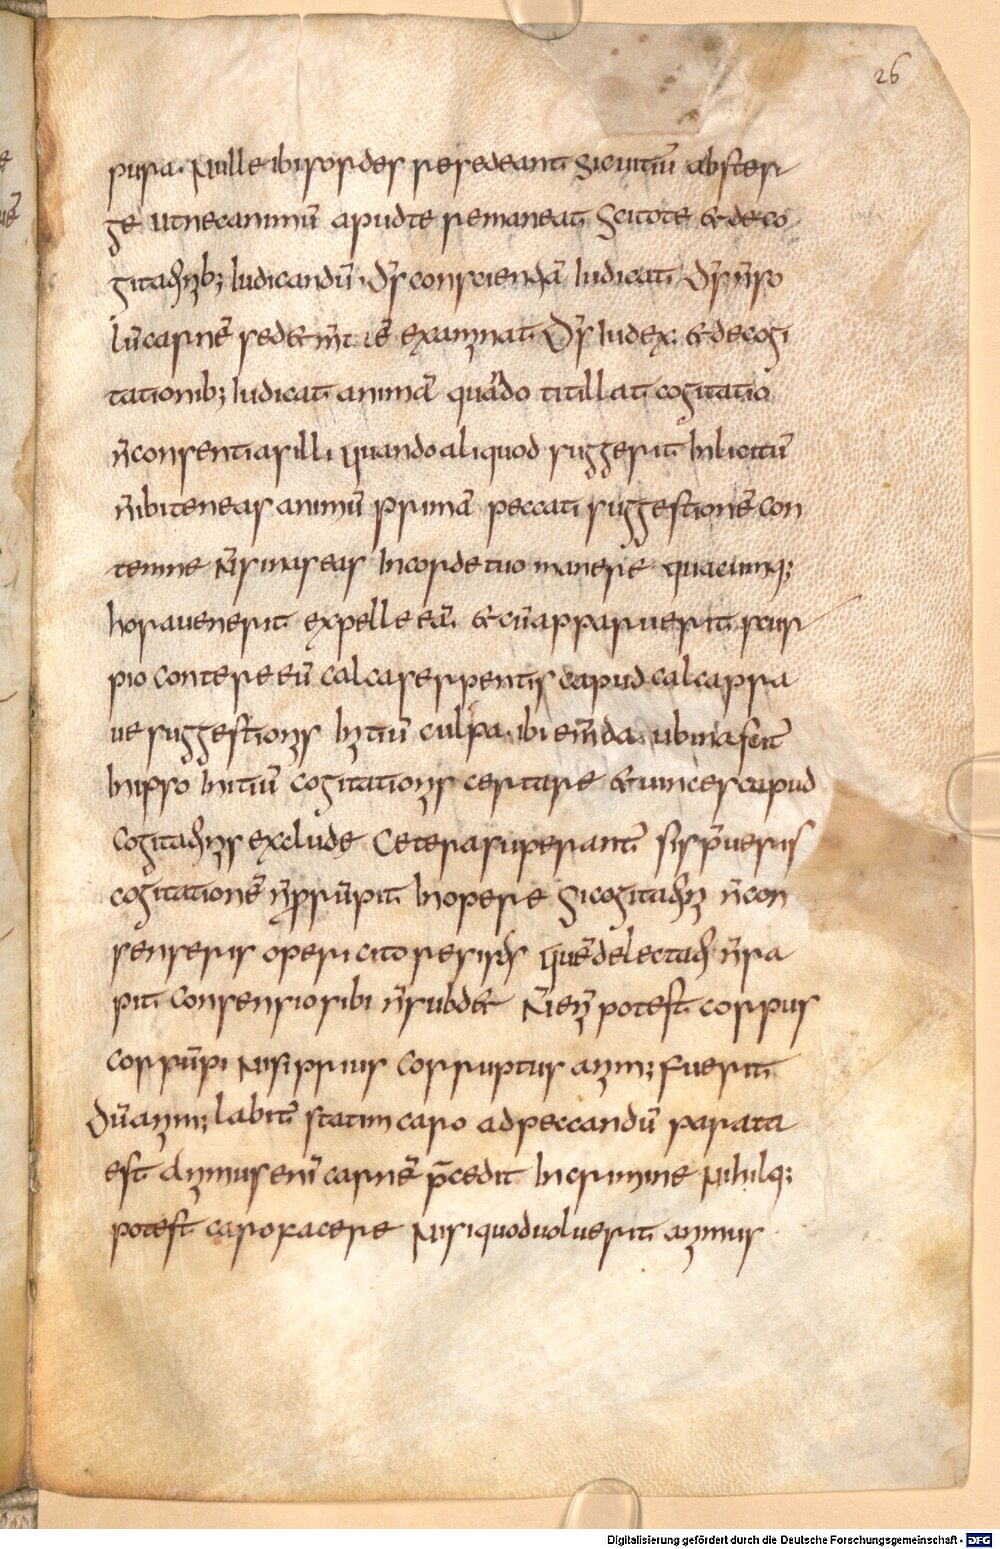 26
pura. Nulle ibi sordes resedeant Sic uitiū abster
ge ut nec animū apud te remaneat Scitote & de co
gitationib; Iudicandū. Ds̄ conscientiā Iudicat Ds̄ n̄ so
lū carnē sed & mentē examinat Ds̄ Iudex & de cogi
tationib; Iudicat animā quādo titillat cogitatio
n̄ consentias illi quando aliquod suggerit Inlicitū
n̄ ibi teneas animū primā peccati suggestionē con
temne N̄ sinas eas In corde tuo manere quacumq;
hora uenerit expelle eā. & cū apparuerit scur
pio contere eū calca serpentis capud calca pra
ue suggestionis Initiū culpa. ibi em̄da. ubi nascit̄
In ipso Initiū cogitationis certare & uinces capud
cogitationis exclude Cetera superant̄ si sp̄ueris
cogitationē n̄ prorūpit In opere Si cogitationi n̄ con
senseris operi cito resistis quē delectatio n̄ ra
pit consensio sibi n̄ subd& N̄ eni potest corpus
corrūpi Nisi prius corruptus anim; fuerit
Dū anim; labit̄ statim caro ad peccandū parata
est Animus eni carnē p̄cedit In crimine Nihilq;
potest caro facere Nisi quod uoluerit animus
Digitalisierung gefördert durch die Deutsche Forschungsgemeinschaft - DFG